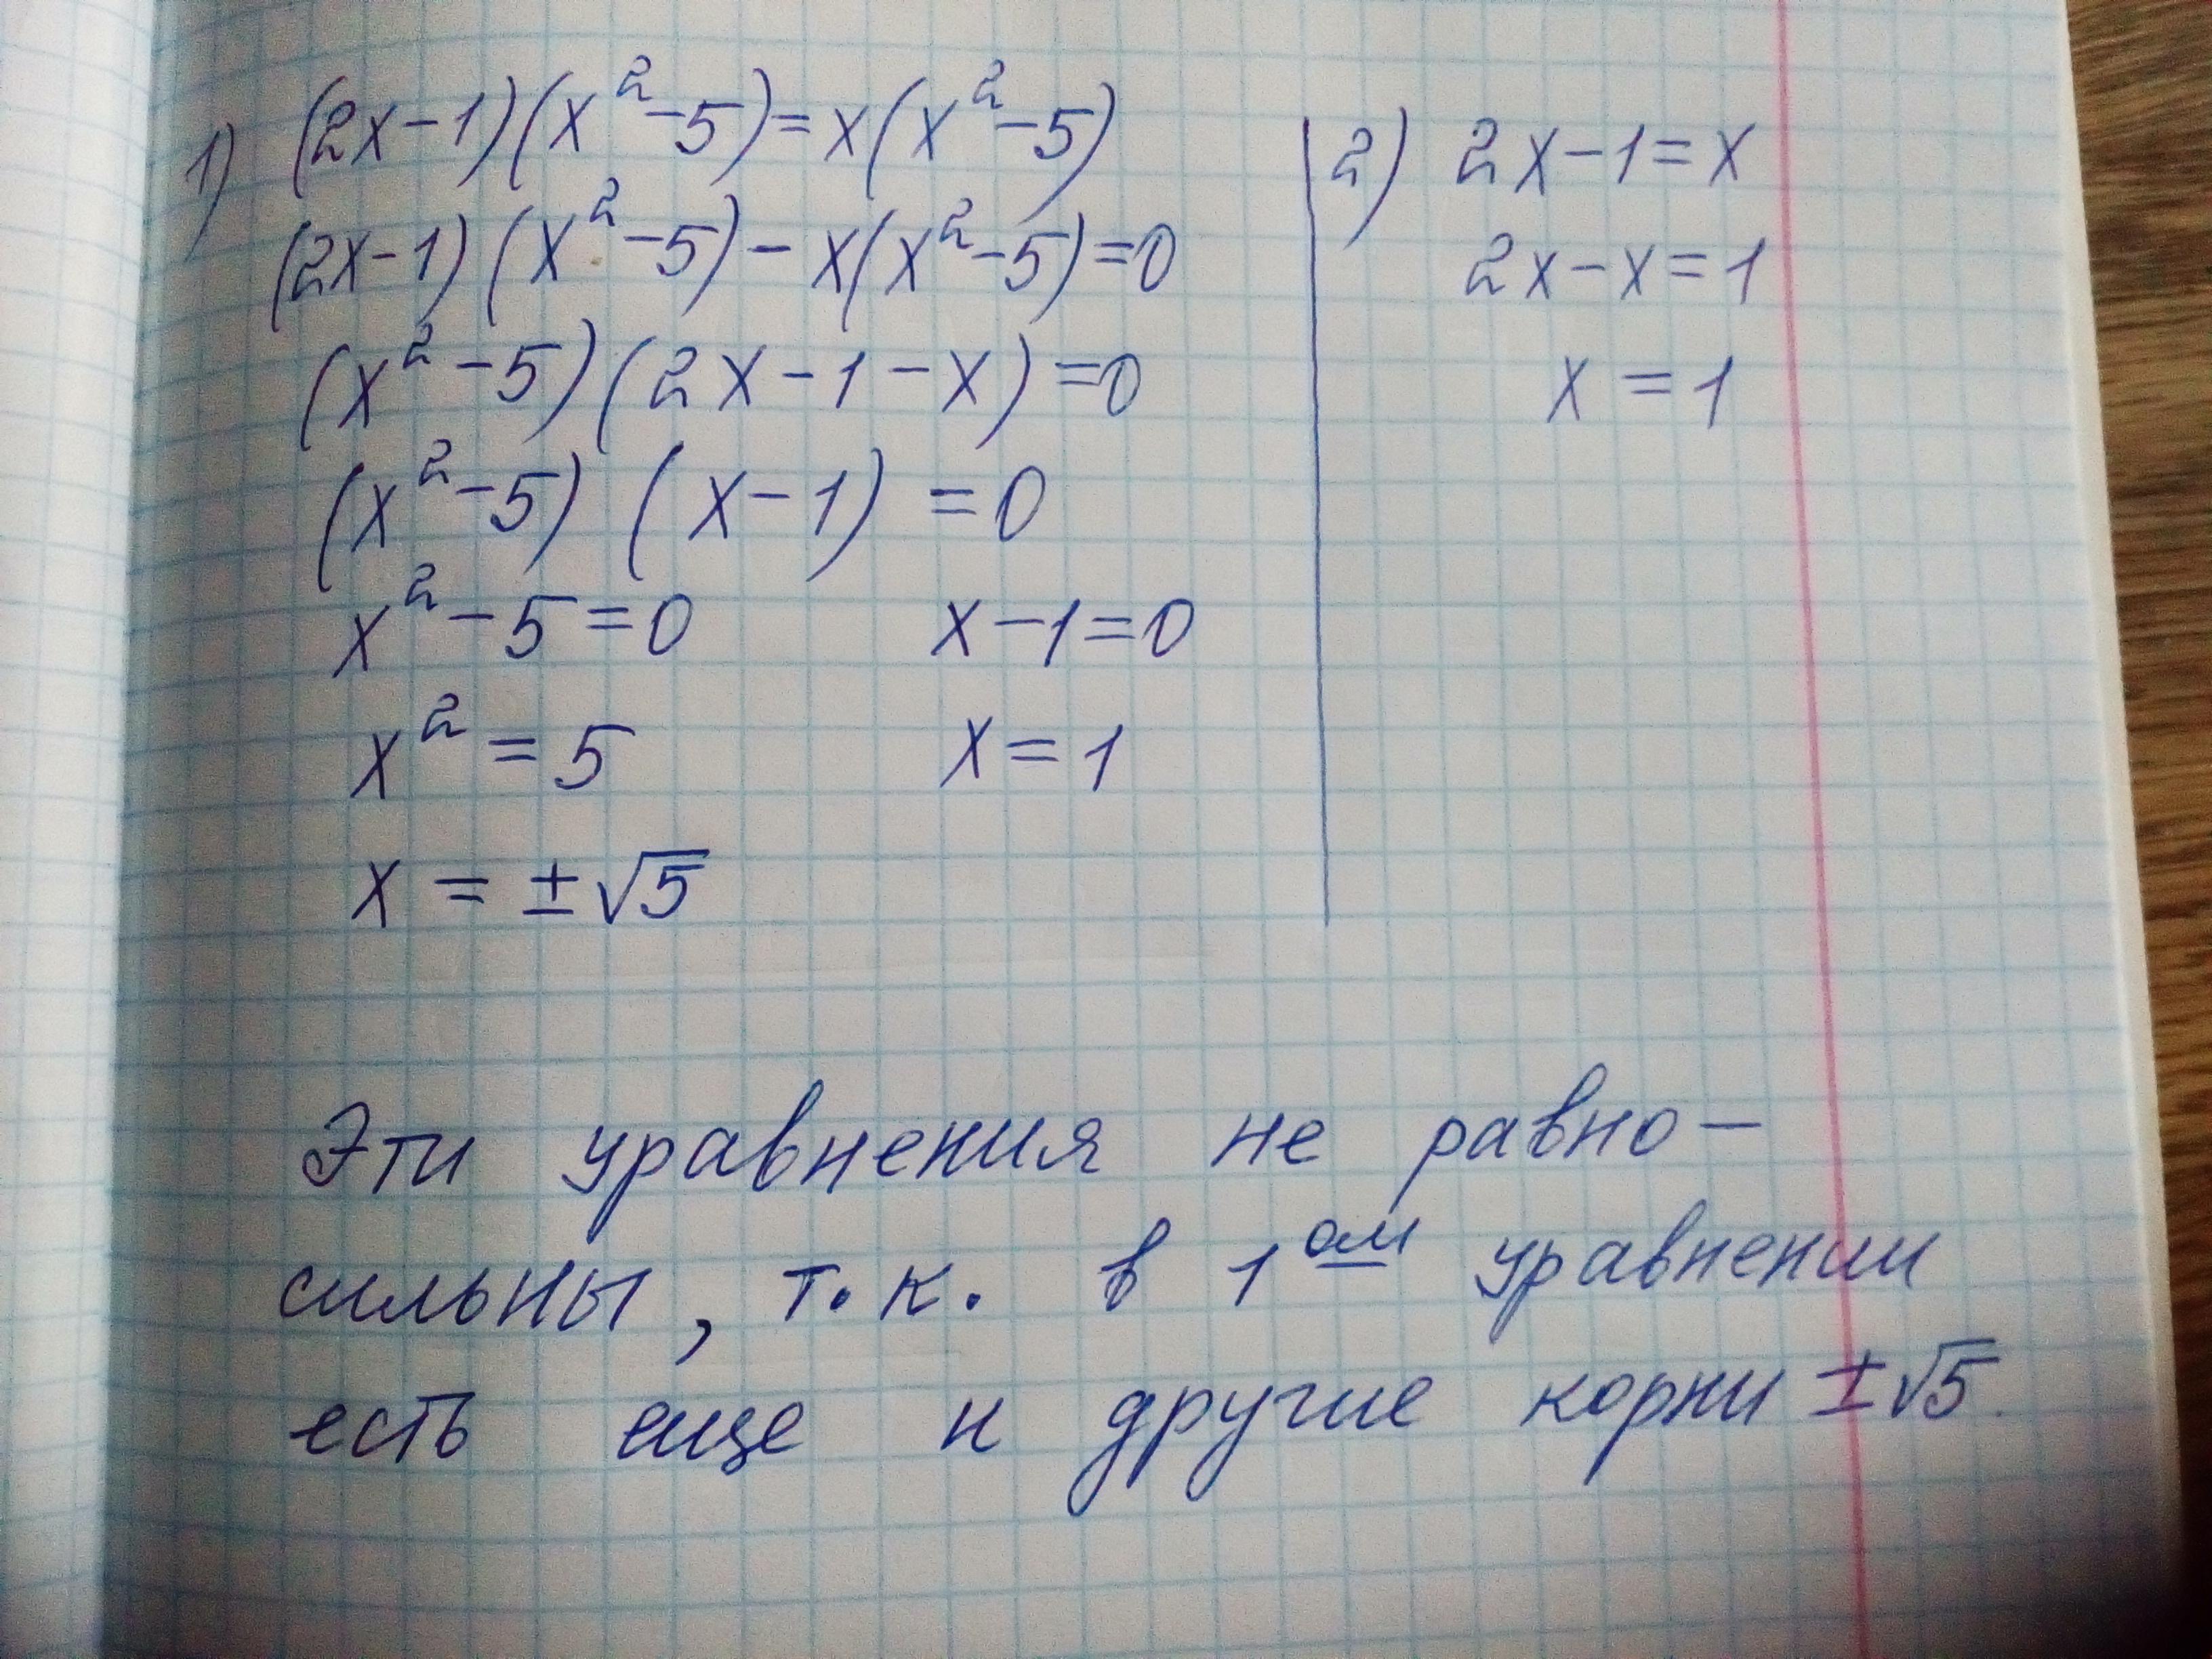 1) (2x-1)(x²-5)=x(x²-5)
(2x-1)(x²-5)-x(x²-5)=0
(x²-5)(2x-1-x)=0
(x²-5)(x-1)=0
x²-5=0 x-1=0
x²=5 x=1
x=±√5
2) 2x-1=x
2x-x=1
x=1
Эти уравнения не равно-
сильны, т.к. в 1ом уравнении
есть еще и другие корни ±√5.